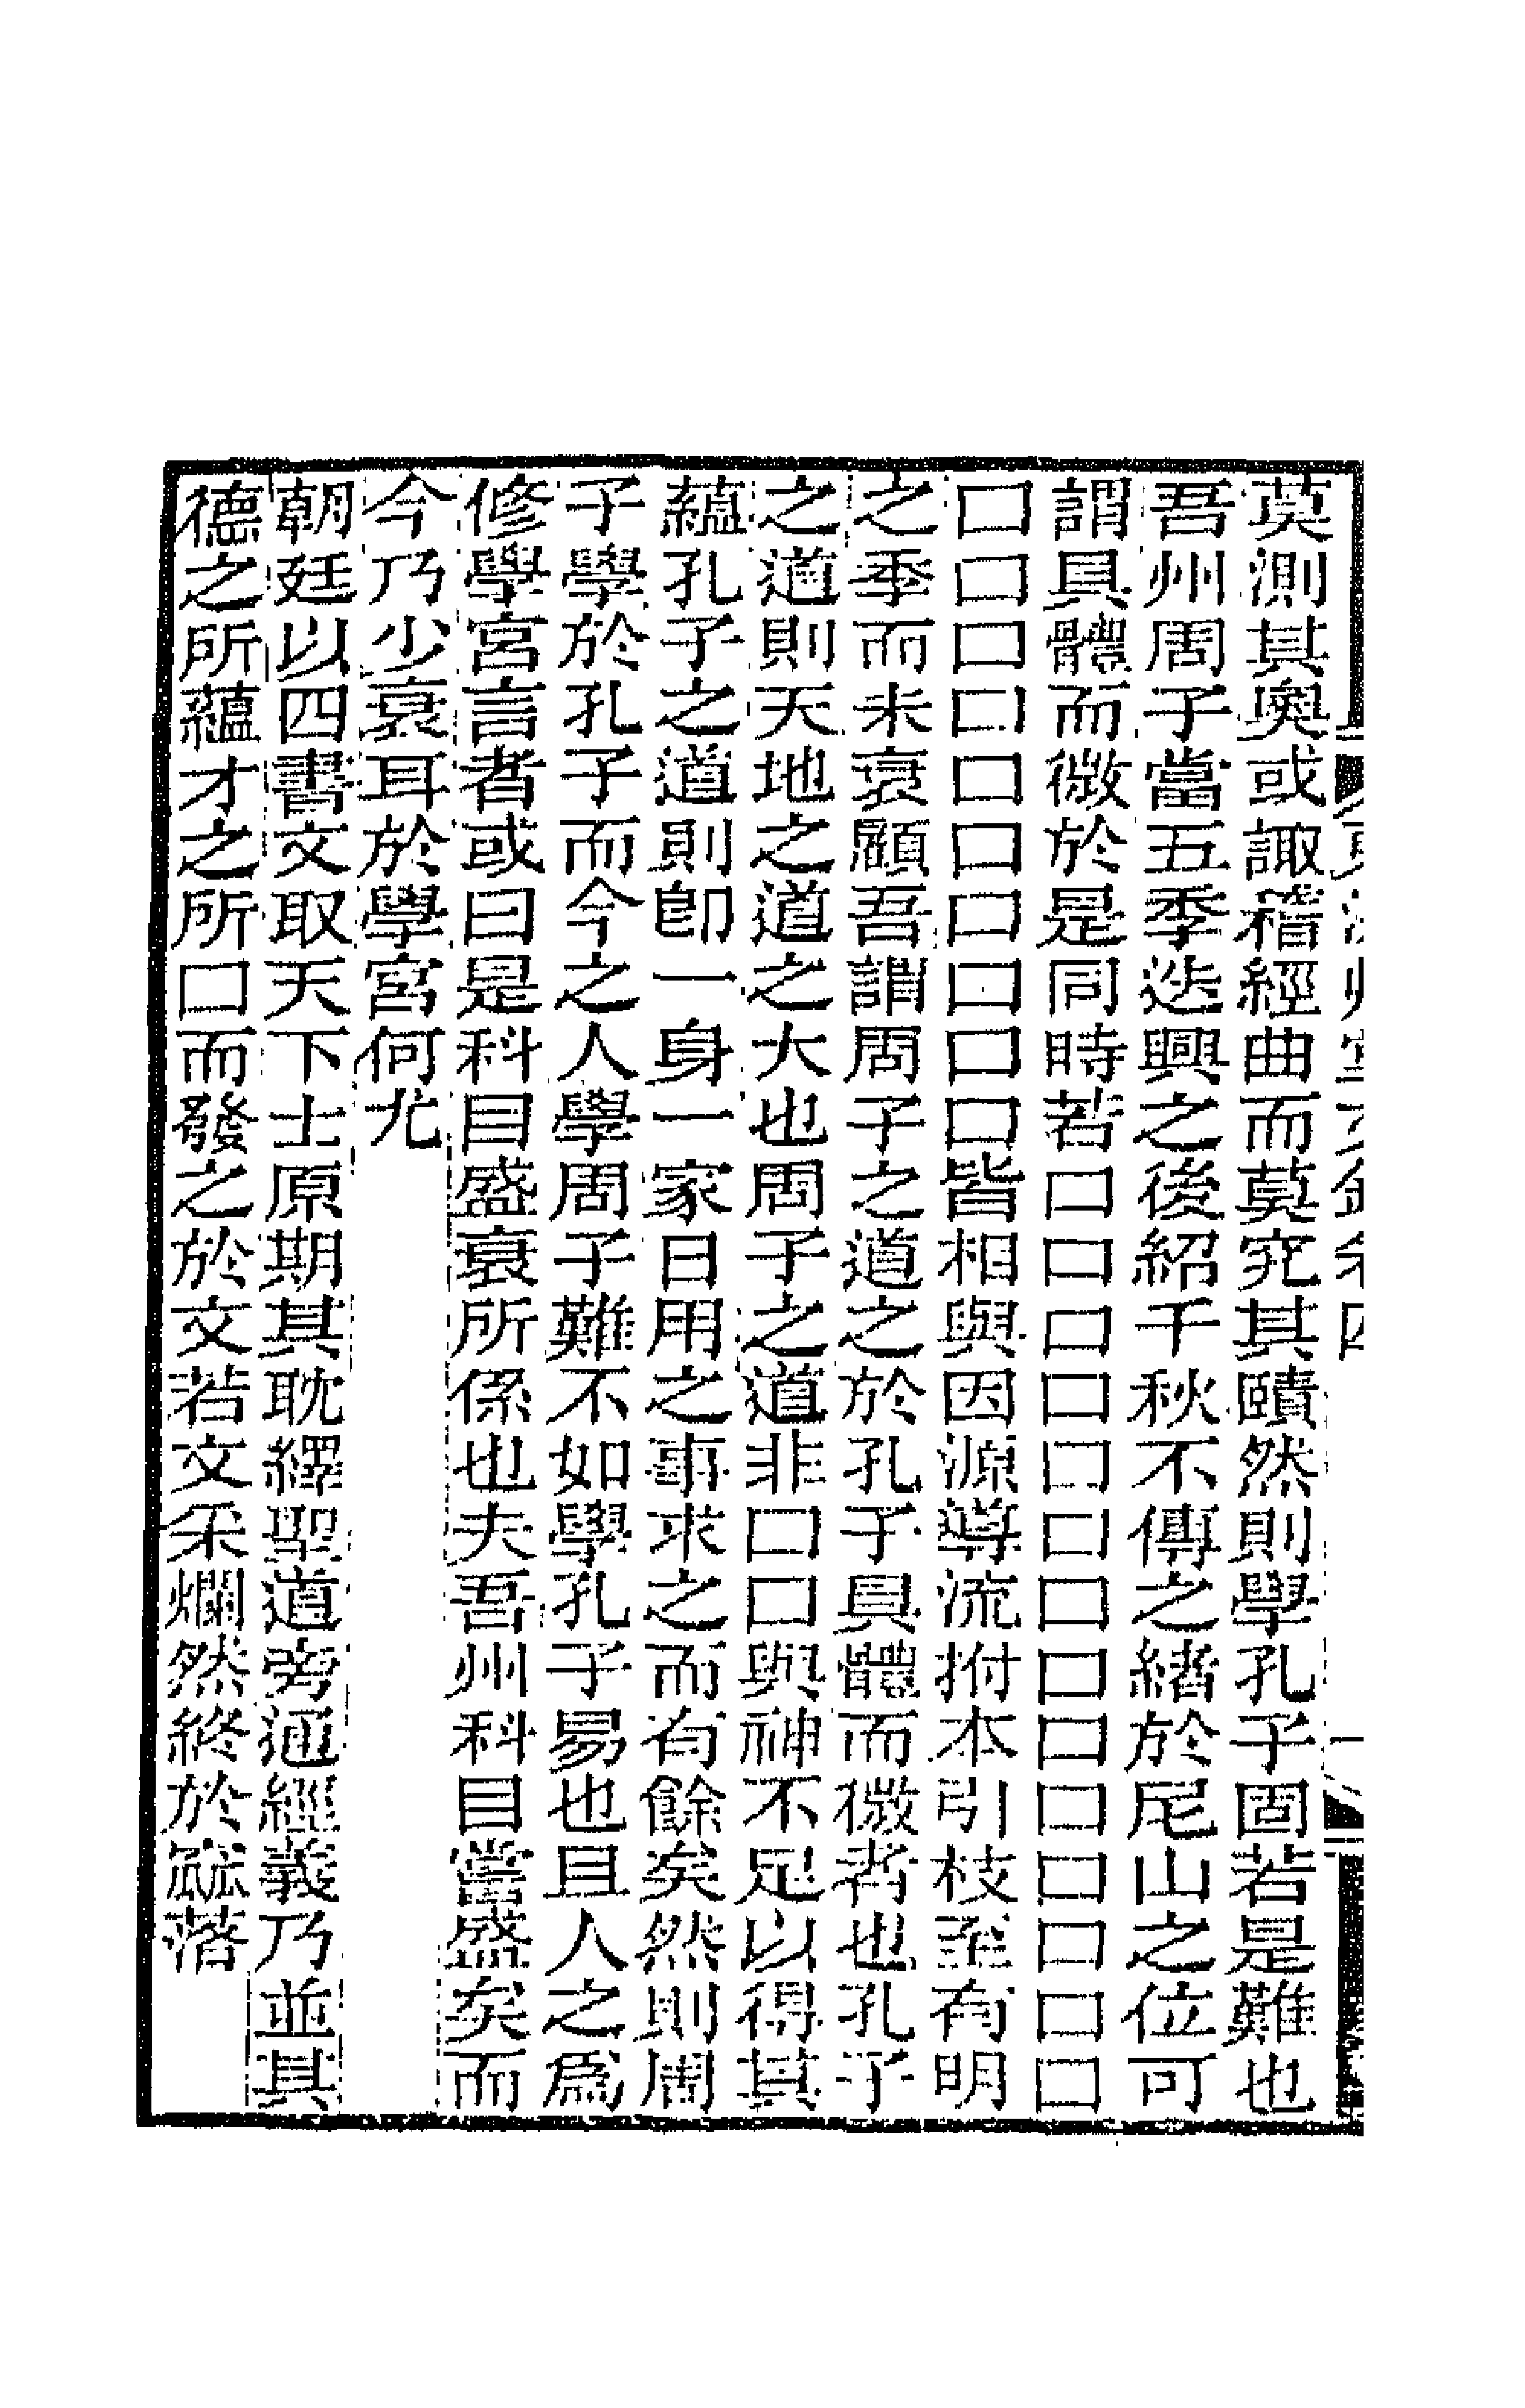 莫測其奥或諏稽經曲而莫究其賾然則學孔子固若是難也
吾州周子當五季迭興之後紹千秋不傳之緒於尼山之位可
謂具體而微於是同時若囗囗囗囗囗囗囗囗囗囗囗囗囗囗
囗囗囗囗囗囗囗囗囗囗皆相與因源導流拊本引枝至有明
之季而未衰顧吾謂周子之道之於孔子具體而微者也孔子
之道則天地之道之大也周子之道非囗囗與神不足以得其
蘊孔子之道則卽一身一家日用之事求之而有餘矣然則周
子學於孔子而今之人學周子難不如學孔子易也且人之爲
修學宮言者或曰是科目盛衰所係也夫吾州科目當盛矣而
今乃少衰耳於學宮何尤
朝廷以四書文取天下士原期其耽繹聖道旁通經義乃並其
德之所蘊才之所囗而發之於文若文采爛然終於瓠落